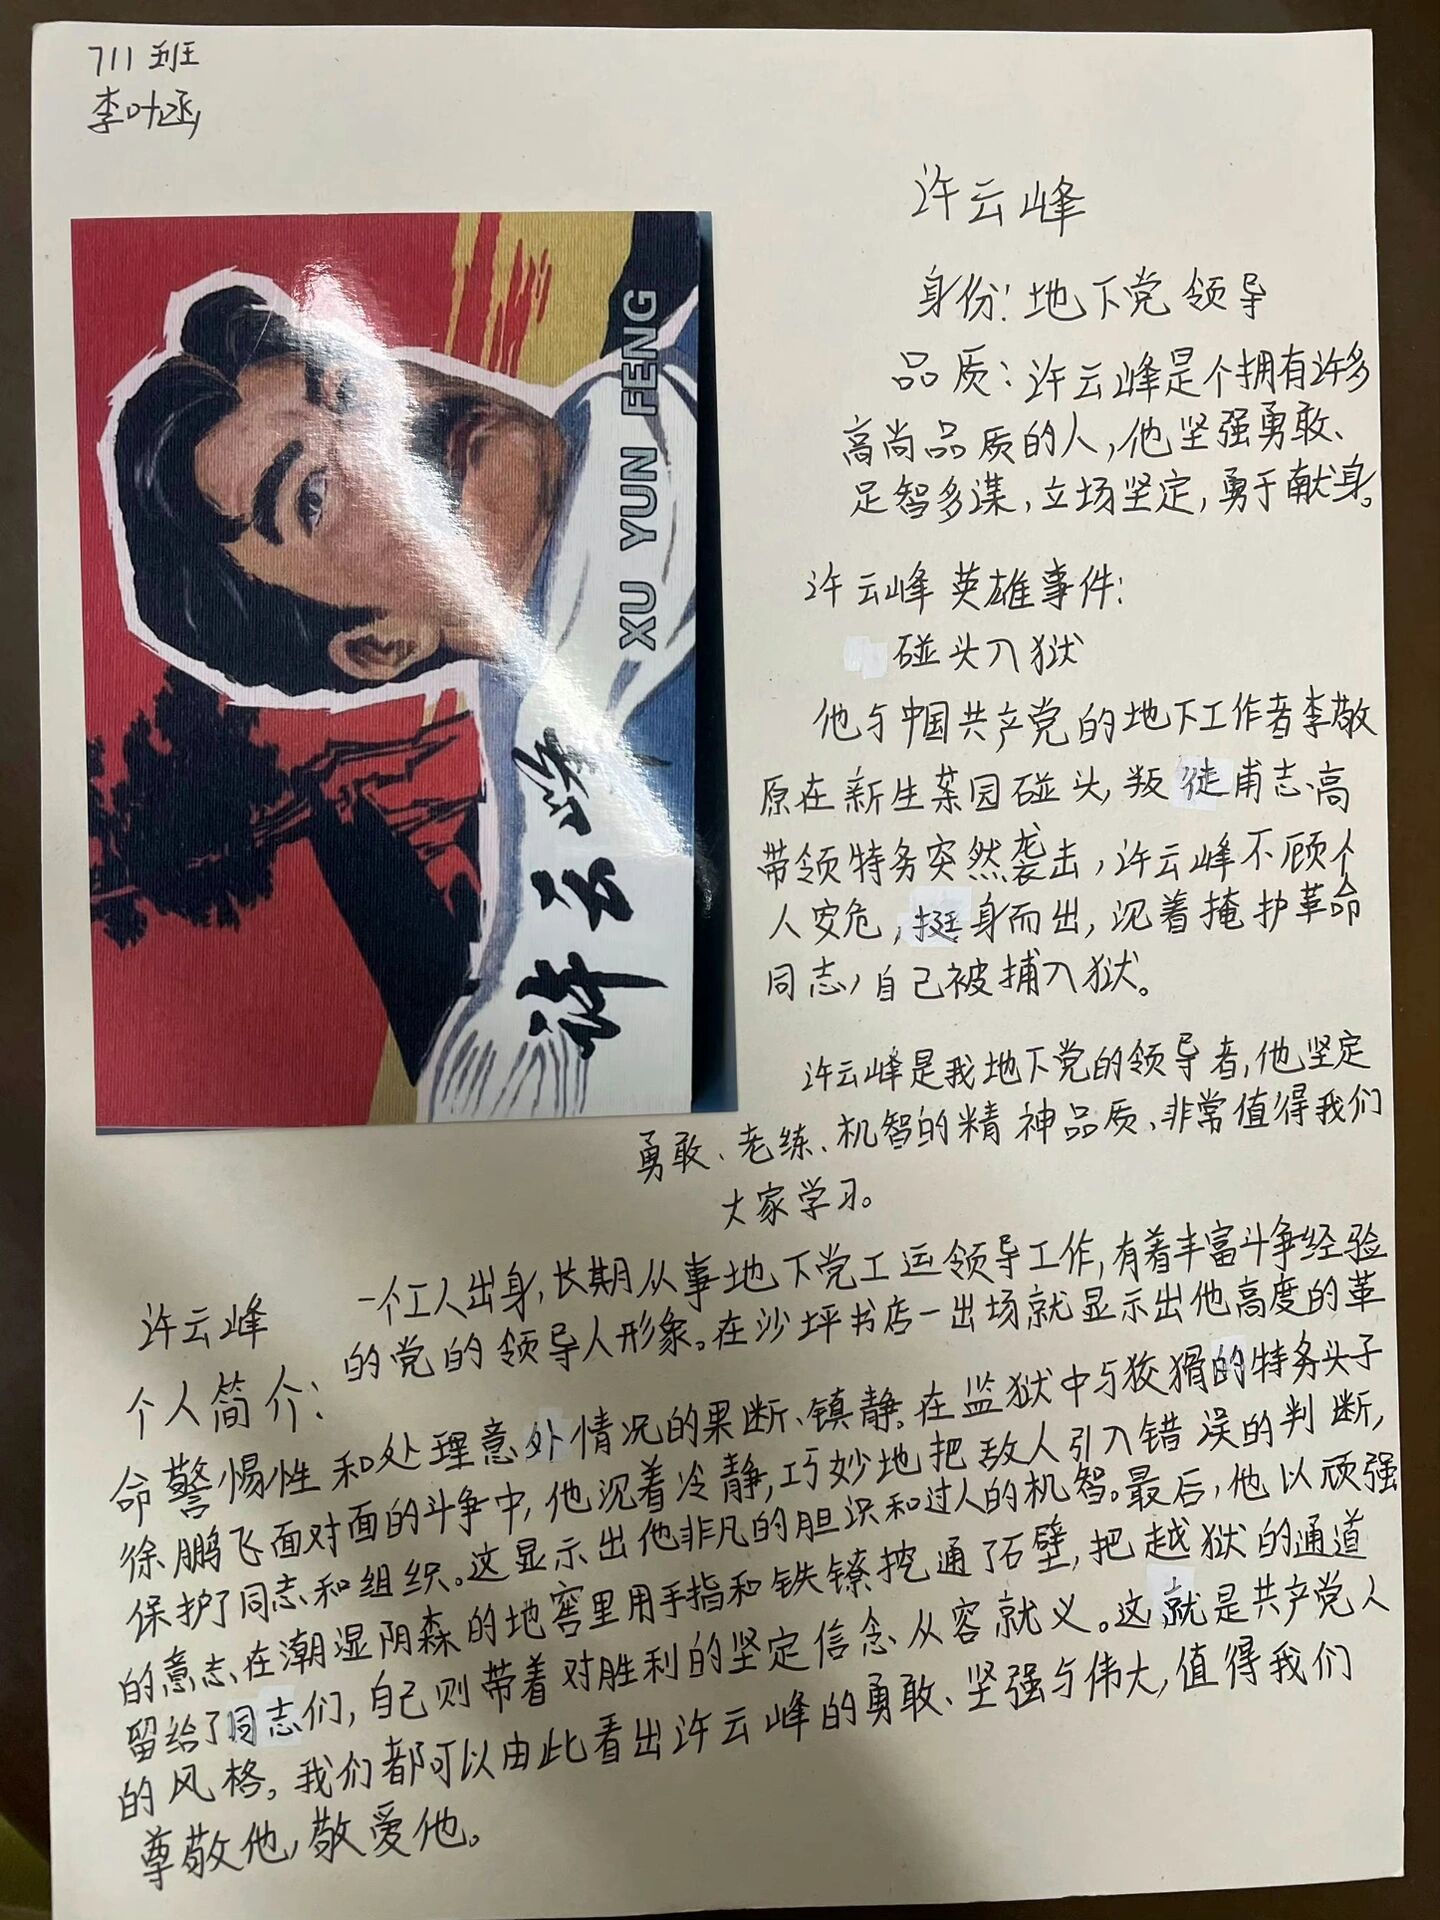 711班
李叶涵
许云峰
XU YUN FENG
许云峰
身份：地下党领导
品质：许云峰是个拥有许多
高尚品质的人，他坚强勇敢、
足智多谋，立场坚定，勇于献身。
许云峰英雄事件：
碰头入狱
他与中国共产党的地下工作者李敬
原在新生菜园碰头，叛徒甫志高
带领特务突然袭击，许云峰不顾个
人安危，挺身而出，沉着掩护革命
同志，自己被捕入狱。
许云峰是我地下党的领导者，他坚定
勇敢、老练、机智的精神品质、非常值得我们
大家学习。
许云峰
个人简介：
一个工人出身，长期从事地下党工运领导工作，有着丰富斗争经验
的党的领导人形象。在沙坪书店一出场就显示出他高度的革
命警惕性和处理意外情况的果断、镇静。在监狱中与狡猾的特务头子
徐鹏飞面对面的斗争中，他沉着冷静，巧妙地把敌人引入错误的判断，
保护了同志和组织。这显示出他非凡的胆识和过人的机智。最后，他以顽强
的意志、在潮湿阴森的地窖里用手指和铁镣挖通了石壁，把越狱的通道
留给了同志们，自己则带着对胜利的坚定信念从容就义。这就是共产党人
的风格。我们都可以由此看出许云峰的勇敢、坚强与伟大，值得我们
尊敬他，敬爱他。